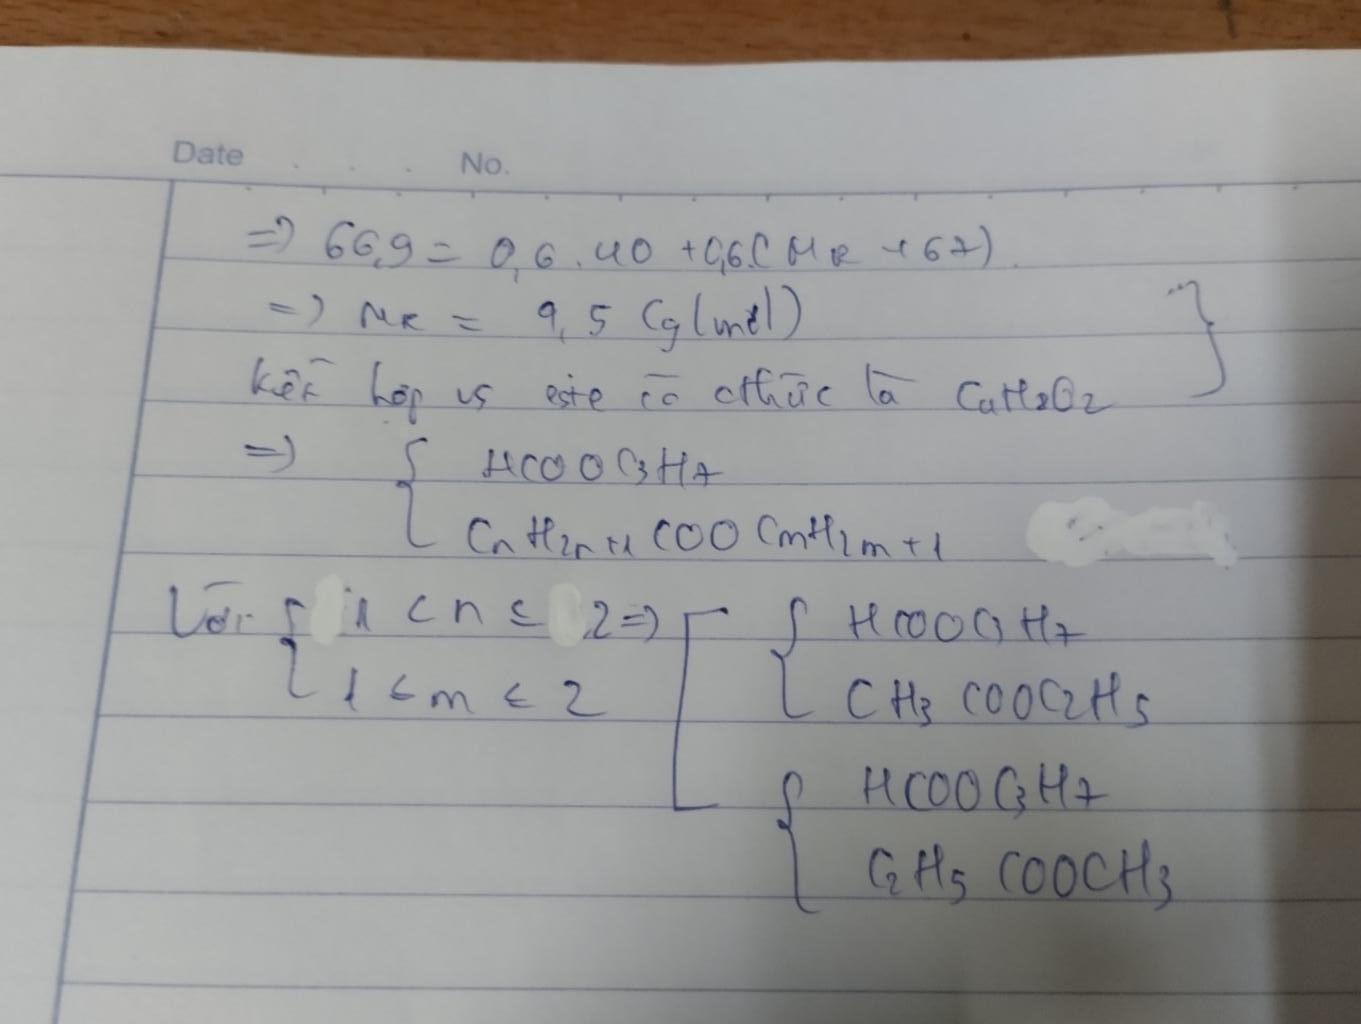 Date No.
=> 66,9 = 0,6.40 + 0,6.(MR + 67)
=> MR = 9,5 (g/mol)
Kết hợp vs este có cthức là C4H8O2
=> { HCOOC3H7
CnH2n+1COOCmH2m+1
Với { 1 ≤ n ≤ 2 => [ { HCOOC3H7
1 ≤ m ≤ 2 { CH3COOC2H5
{ HCOOC3H7
C2H5COOCH3